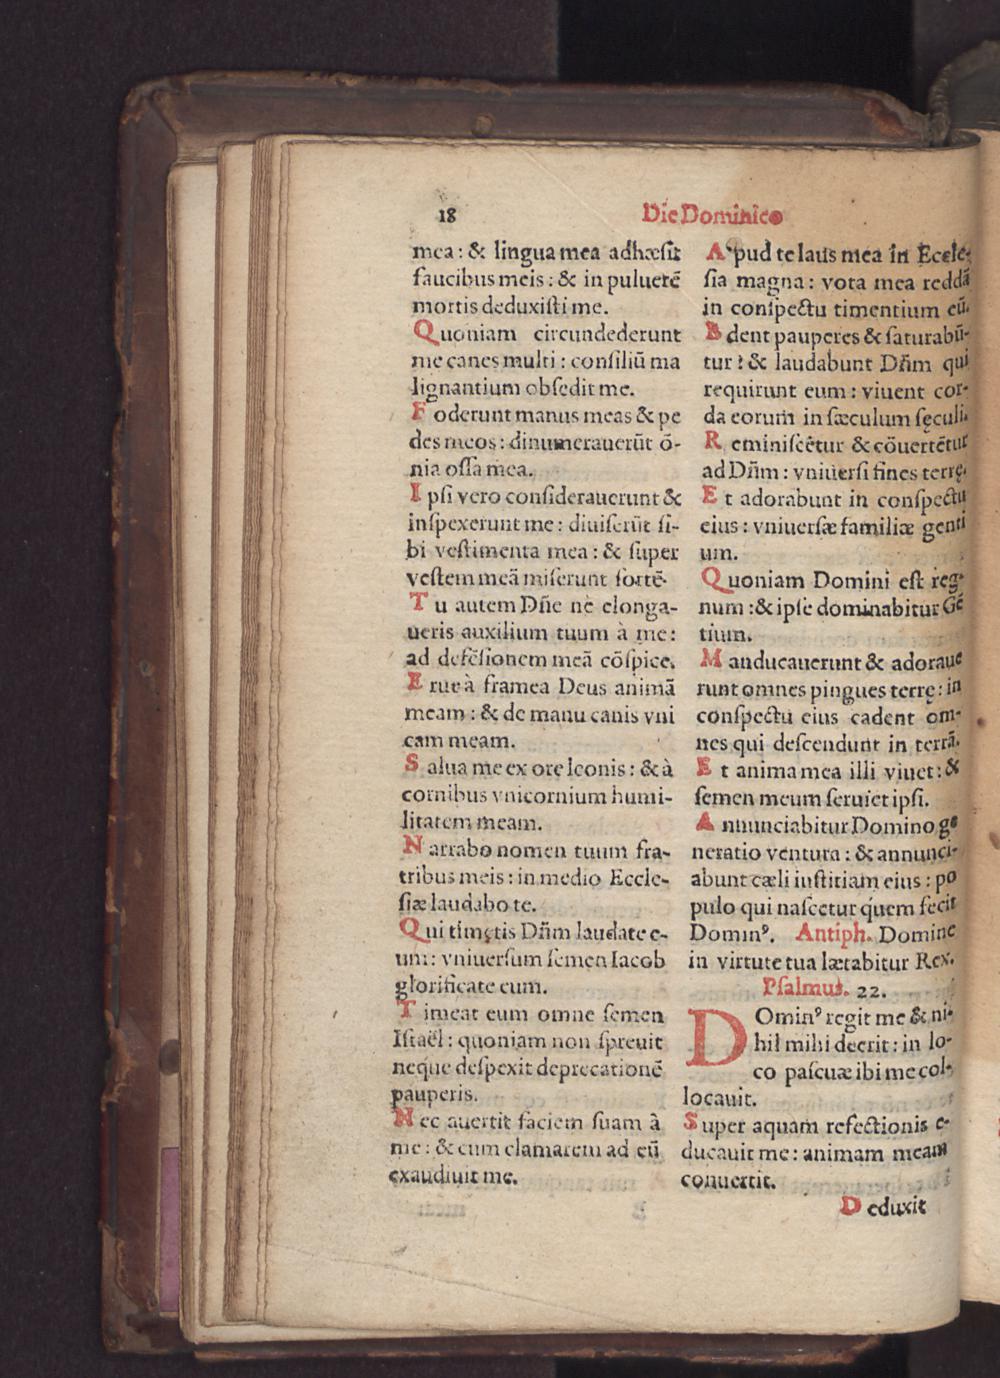 18
Die Dominico
mea : & lingua mea adhæsit
faucibus meis : & in puluerẽ
mortis deduxisti me.
Quoniam circundederunt
me canes multi : consiliũ ma
lignantium obsedit me.
Foderunt manus meas & pe
des meos : dinumerauerũt õ-
nia ossa mea.
Ipsi vero considerauerunt &
inspexerunt me : diuiserũt si-
bi vestimenta mea : & super
vestem meã miserunt sortẽ.
Tu autem Dñe ne elonga-
ueris auxilium tuum à me :
ad defẽsionem meã cõspice.
Erue à framea Deus animã
meam : & de manu canis vni
cam meam.
Salua me ex ore leonis : & à
cornibus vnicornium humi-
litatem meam.
Narrabo nomen tuum fra-
tribus meis : in medio Eccle-
siæ laudabo te.
Qui timętis Dñm laudate e-
um : vniuersum semen Iacob
glorificate eum.
Timeat eum omne semen
Istaël : quoniam non spreuit
neque despexit deprecationẽ
pauperis.
Nec auertit faciem suam à
me : & cum clamarem ad eũ
exaudiuit me.
Apud te laus mea in Eccle-
sia magna : vota mea reddã
in conspectu timentium eũ.
Edent pauperes & saturabũ-
tur : & laudabunt Dñm qui
requirunt eum : viuent cor-
da eorum in sæculum sęculi.
Reminiscẽtur & cõuertẽtur
ad Dñm : vniuersi fines terrę.
Et adorabunt in conspectu
eius : vniuersæ familiæ genti
um.
Quoniam Domini est reg-
num : & ipse dominabitur Gẽ
tium.
Manducauerunt & adoraue
runt omnes pingues terrę : in
conspectu eius cadent om-
nes qui descendunt in terrã.
Et anima mea illi viuet : &
semen meum seruiet ipsi.
Annunciabitur Domino ge
neratio ventura : & annunci-
abunt cæli iustitiam eius : po
pulo qui nascetur quem fecit
Domin⁹. Antiph. Domine
in virtute tua lætabitur Rex.
Psalmus. 22.
Domin⁹ regit me & ni-
hil mihi deerit : in lo-
co pascuæ ibi me col-
locauit.
Super aquam refectionis e-
ducauit me : animam meam
conuertit.
Deduxit